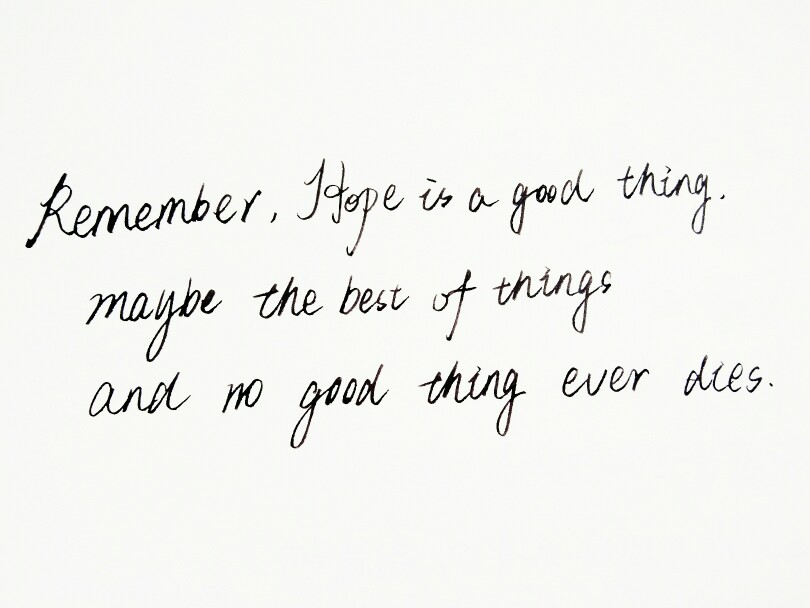 Remember, Hope is a good thing.
maybe the best of things
and no good thing ever dies.